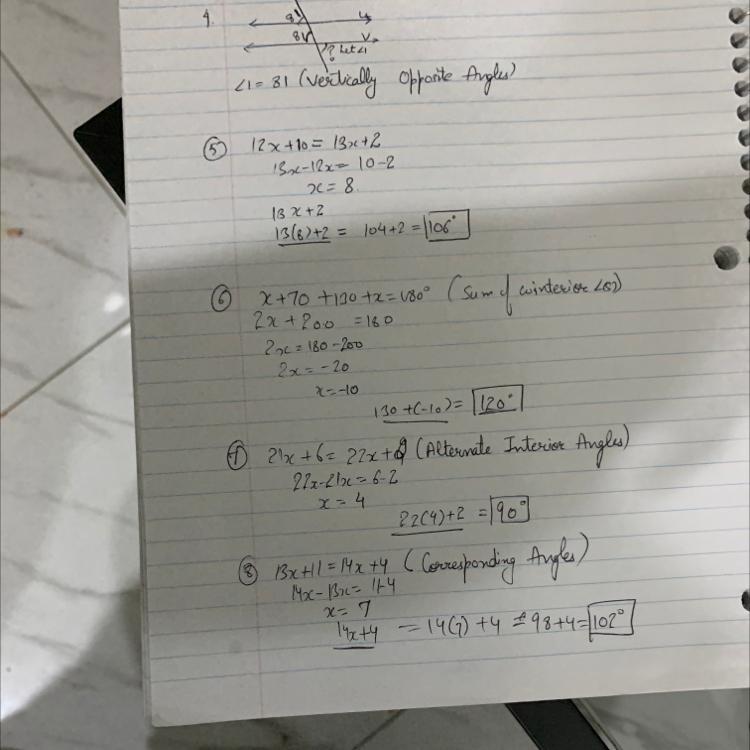 4.
81
81
? let ∠1
∠1 = 81 (Vertically Opposite Angles)
⑤ 12x+10 = 13x+2
13x-12x = 10-2
x = 8
13x+2
13(8)+2 = 104+2 = 106°
⑥ x+70+130+x=180° (Sum of cointerior ∠s)
2x+200 =180
2x = 180-200
2x = -20
x = -10
130+(-10) = 120°
⑦ 21x+6 = 22x+2 (Alternate Interior Angles)
22x-21x = 6-2
x = 4
22(4)+2 = 90°
⑧ 13x+11 = 14x+4 (Corresponding Angles)
14x-13x = 11-4
x = 7
14x+4 = 14(7)+4 = 98+4 = 102°